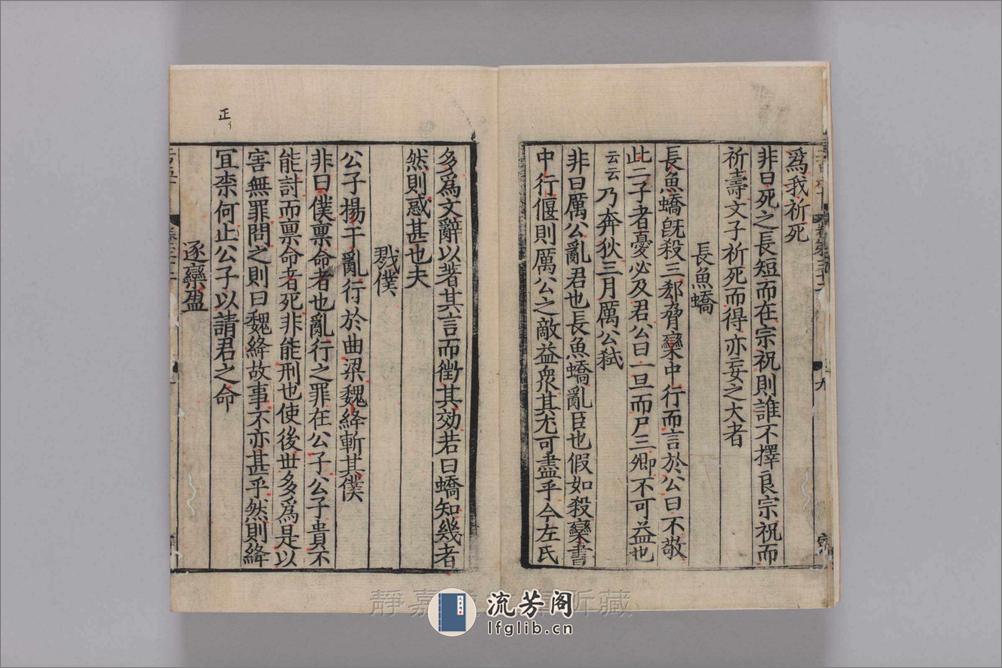 爲我祈死
非曰死之長短而在宗祝則誰不擇良宗祝而
祈壽文子祈死而得亦妄之大者
長魚蟜
長魚蟜旣殺三郄脅欒中行而言於公曰不敬
此二子者憂必及君公曰一旦而尸三卿不可益也
云云乃奔狄三月厲公弒
非曰厲公亂君也長魚蟜亂臣也假如殺欒書
中行偃則厲公之敵益衆其尤可盡乎今左氏
多爲文辭以著其言而徵其効若曰蟜知幾者
然則惑甚也夫
戮僕
公子揚干亂行於曲梁魏絳斬其僕
非曰僕禀命者也亂行之罪在公子公子貴不
能討而禀命者死非能刑也使後世多爲是以
害無罪問之則曰魏絳故事不亦甚乎然則絳
宜柰何止公子以請君之命
逐欒盈
正
靜嘉
所藏
流芳阁
lfglib.cn